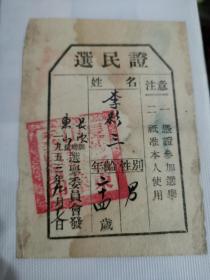 選民證
注意
一 憑證參加選舉
二 祇准本人使用
姓名
李彩三
年齡 性別
歲 男
選舉委員會發
一九五三年